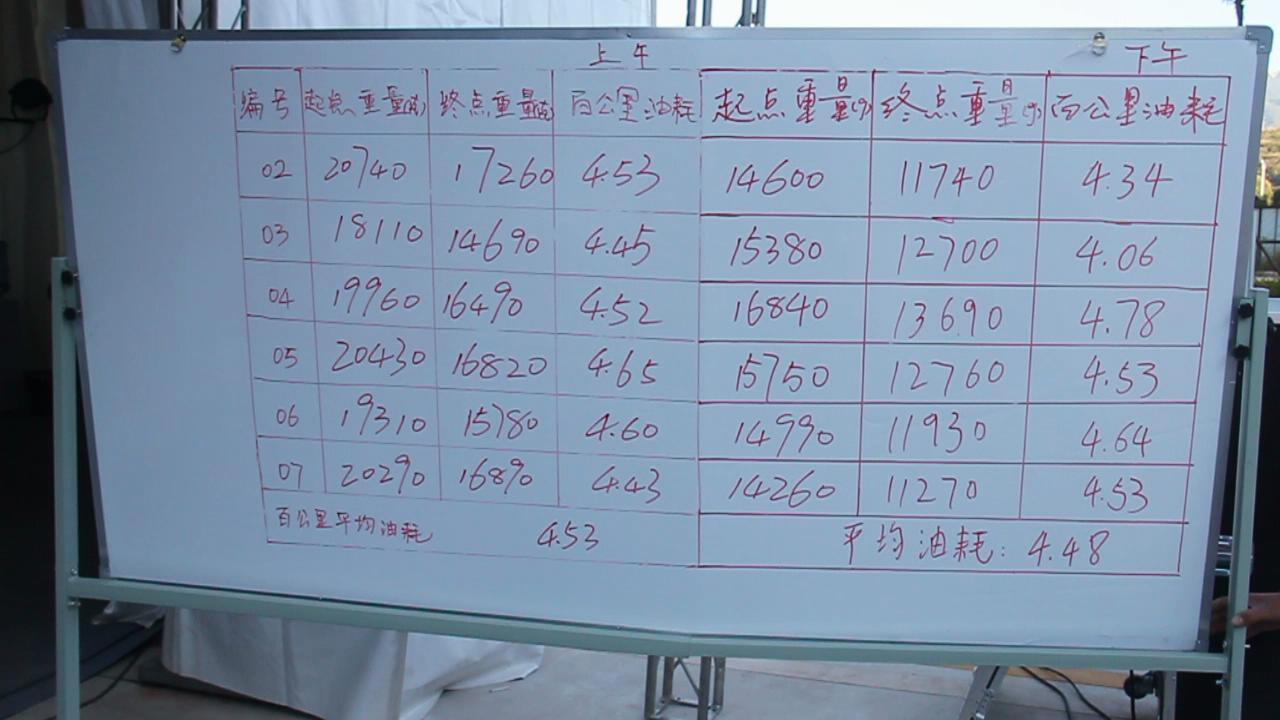 上午 下午
编号 起点重量(g) 终点重量(g) 百公里油耗 起点重量(g) 终点重量(g) 百公里油耗
02 20740 17260 4.53 14600 11740 4.34
03 18110 14690 4.45 15380 12700 4.06
04 19960 16490 4.52 16840 13690 4.78
05 20430 16820 4.65 15750 12760 4.53
06 19310 15780 4.60 14990 11930 4.64
07 20290 16890 4.43 14260 11270 4.53
百公里平均油耗 4.53 平均油耗: 4.48